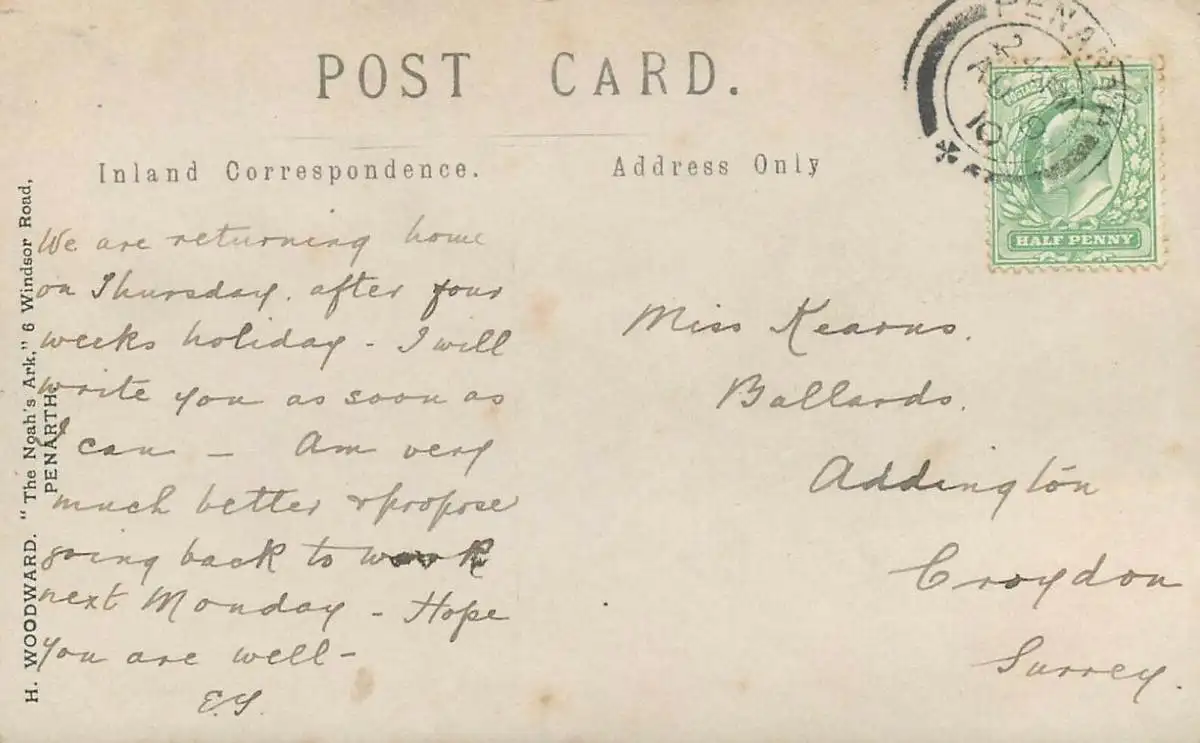 POST CARD.
Inland Correspondence.
Address Only
PENARTH
10
HALF PENNY
We are returning home
on Thursday, after four
weeks holiday - I will
write you as soon as
I can - Am very
much better & propose
going back to work
next Monday - Hope
you are well -
Miss Kearns.
Ballards.
Addington
Croydon
Surrey.
H. WOODWARD. "The Noah's Ark," 6 Windsor Road,
PENARTH